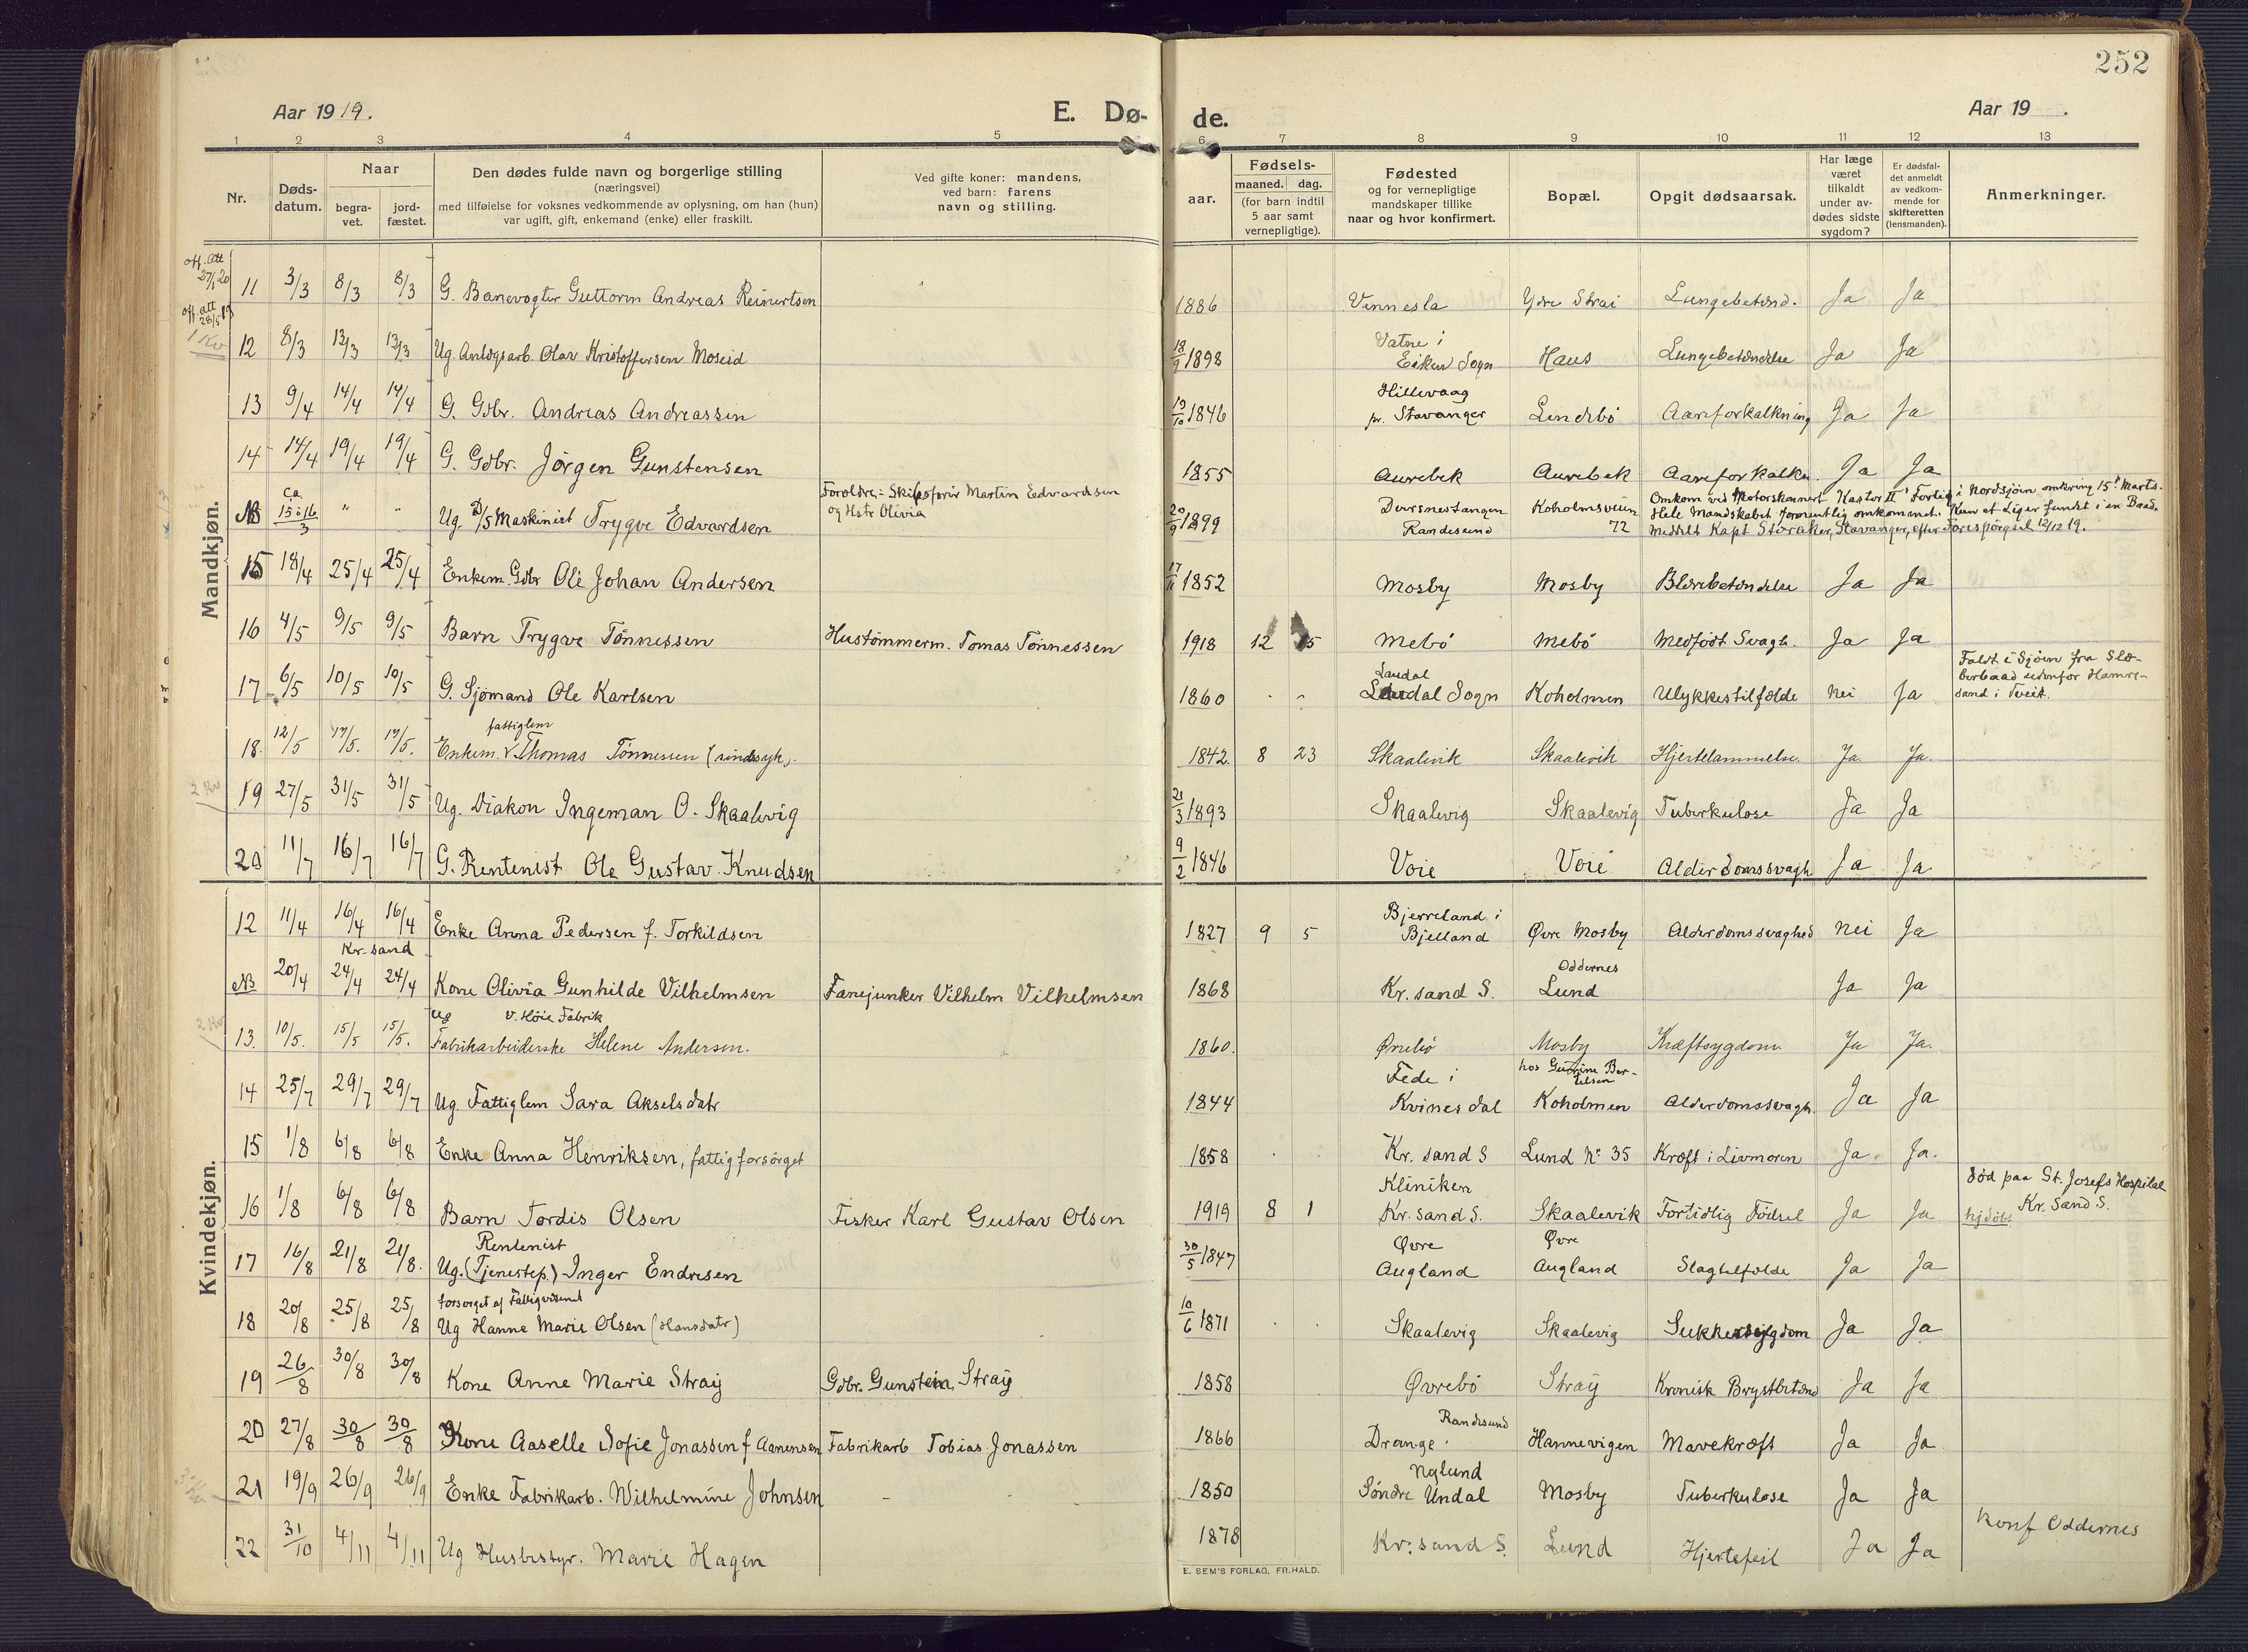 252
Aar 1919.
E. Dø-
de.
Aar 19 .
1 2 3 4 5 6 7 8 9 10 11 12 13
Nr.
Døds-
datum.
Naar
begra-
vet.
jord-
fæstet.
Den dødes fulde navn og borgerlige stilling
(næringsvei)
med tilføielse for voksnes vedkommende av oplysning, om han (hun)
var ugift, gift, enkemand (enke) eller fraskilt.
Ved gifte koner: mandens,
ved barn: farens
navn og stilling.
Fødsels-
aar.
maaned. dag.
(for barn indtil
5 aar samt
vernepligtige).
Fødested
og for vernepligtige
mandskaper tillike
naar og hvor konfirmert.
Bopæl.
Opgit dødsaarsak.
Har læge
været
tilkaldt
under av-
dødes sidste
sygdom?
Er dødsfal-
det anmeldt
av vedkom-
mende for
skifteretten
(lensmanden).
Anmerkninger.
Mandkjøn.
off. att
27/1 20
11 3/3 8/3 8/3 G. Banevogter Guttorm Andreas Reinertsen 1886 Vennesla Ydre Strai Lungebetænd. Ja Ja
off. att
28/5 19
1 Kv
12 8/3 13/3 13/3 Ug. Anlægsarb. Olav Kristoffersen Moseid 18/9 1898 Vatne i
Eiken Sogn Haus Lungebetændelse Ja Ja
13 9/4 14/4 14/4 G. Gdbr. Andreas Andreassen 19/10 1846 Hillevaag
pr. Stavanger Lindebö Aareforkalkning Ja Ja
14 14/4 19/4 19/4 G. Gdbr. Jörgen Gunstensen 1855 Aurebek Aurebek Aareforkalkn. Ja Ja
NB ca. 15 à 16/3 " " Ug. D/S Maskinist Trygve Edvardsen
Forældre: Skibsförer Martin Edvardsen
og Hstr Olivia
20/9 1899 Dversnestangen
Randesund
Koholmsveien
72
Omkom ved Motorskonnert "Kastor II" Forlig i Nordsjöen omkring 15de Marts.
Hele Mandskabet formentlig omkommet. Kun et Lig er fundet i en Baad.
Meddelt Kapt Storaker, Stavanger, efter Forespörgsel 12/12 19.
15 18/4 25/4 25/4 Enkem. Gdbr Ole Johan Andersen 17/11 1852 Mosby Mosby Blærebetændelse Ja Ja
16 4/5 9/5 9/5 Barn Trygve Tönnessen Hustömmerm. Tomas Tönnessen 1918 12 15 Mebö Mebö Medfödt Svagh. Ja Ja
17 6/5 10/5 10/5 G. Sjømand Ole Karlsen 1860 Laudal
Laudal Sogn Koholmen Ulykkestilfælde Nei Ja
Faldt i Sjöen fra Slæ-
berbaad udenfor Hamre-
sand i Tveit.
fattiglem
18. 12/5 17/5. 17/5. Enkem. Thomas Tönnessen (sindssyk). 1842. 8 23 Skaalevik Skaalevik Hjertelammelse. Ja Ja.
2 Kv
19 27/5 31/5 31/5 Ug. Diakon Ingeman O. Skaalevig 21/3 1893 Skaalevig Skaalevig Tuberkulose Ja Ja
20 11/7 16/7 16/7 G. Rentenist Ole Gustav Knudsen 9/2 1846 Voie Voie Alderdomssvagh Ja Ja
Kvindekjøn.
12 11/4 16/4 16/4 Enke Anna Pedersen f. Torkildsen 1827 9 5 Bjerreland i
Bjelland Øvre Mosby Alderdomssvaghed Nei Ja
Kr. sand
NB 20/4 24/4 24/4 Kone Olivia Gunhilde Vilhelmsen Fanejunker Vilhelm Vilhelmsen 1868 Kr. sand S. Oddernes
Lund Ja Ja
2 Kv
Ug v. Höie Fabrik
13. 10/5. 15/5 15/5. Fabrikarbeiderske Helene Andersen. 1860. Øvrebö Mosby Kræftsygdom. Ja Ja.
14 25/7 29/7 29/7 Ug. Fattiglem Sara Akselsdatr 1844 Fede i
Kvinesdal hos Gurine Ber-
telsen
Koholmen Alderdomssvagh. Ja Ja
15 1/8 6/8 6/8 Enke Anna Henriksen, fattigforsörget 1858 Kr. sand S Lund No 35 Kræft i Livmoren Ja Ja.
16 1/8 6/8 6/8 Barn Tordis Olsen Fisker Karl Gustav Olsen 1919 8 1 Kliniken
Kr. sand S. Skaalevik Fortidlig Födsel Ja Ja
död paa St. Josefs Hospital
Kr. Sand S.
hjdöbt
Rentenist
17 16/8 21/8 21/8. Ug. (Tjenestep.) Inger Endresen 30/5 1847 Øvre
Augland Øvre
Augland Slagtilfælde Ja Ja
forsörget af Fattigvæsenet
18 20/8 25/8 25/8 Ug Hanne Marie Olsen (Hansdatr) 10/6 1871 Skaalevig Skaalevig Sukkersygdom Ja Ja
19 26/8 30/8 30/8 Kone Anne Marie Straij Gdbr. Gunstein Straij 1858 Øvrebö Straij Kronisk Brystbetænd Ja Ja
20 27/8 30/8 30/8 Kone Aaselle Sofie Jonassen f Aanensen Fabrikarb Tobias Jonassen 1866 Randesund
Drange Hannevigen Mavekræft Ja Ja
3 Kv
21 19/9 26/9 26/9 Enke Fabrikarb. Wilhelmine Johnsen - 1850 Nylund
Söndre Undal Mosby Tuberkulose Ja Ja
22 31/10 4/11 4/11 Ug Husbestyr. Marie Hagen 1878 Kr. sand S. Lund Hjertefeil Ja Ja
Konf Oddernes
E. SEM'S FORLAG, FR.HALD.